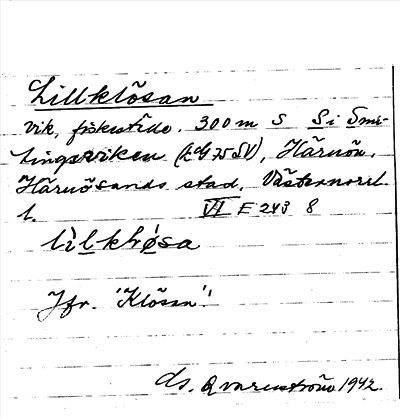 Lillklösan
vik, fiskeställe. 300 m S S i Smi-
tingsviken (LG 75 SV), Härnön,
Härnösands stad, Västernorrl.
l. VI E 243 8
Jfr. 'Klösan'!
ds. Qvarnström 1942